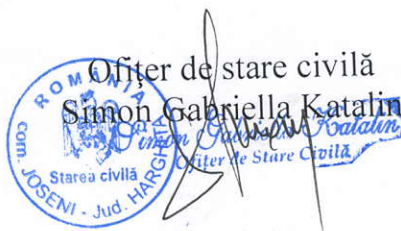 Ofițer de stare civilă
Simon Gabriella Katalin
ROMÂNIA
Starea civilă
com. JOSENI - Jud. HARGHITA
Simon Gabriella Katalin
Ofiter de Stare Civilă